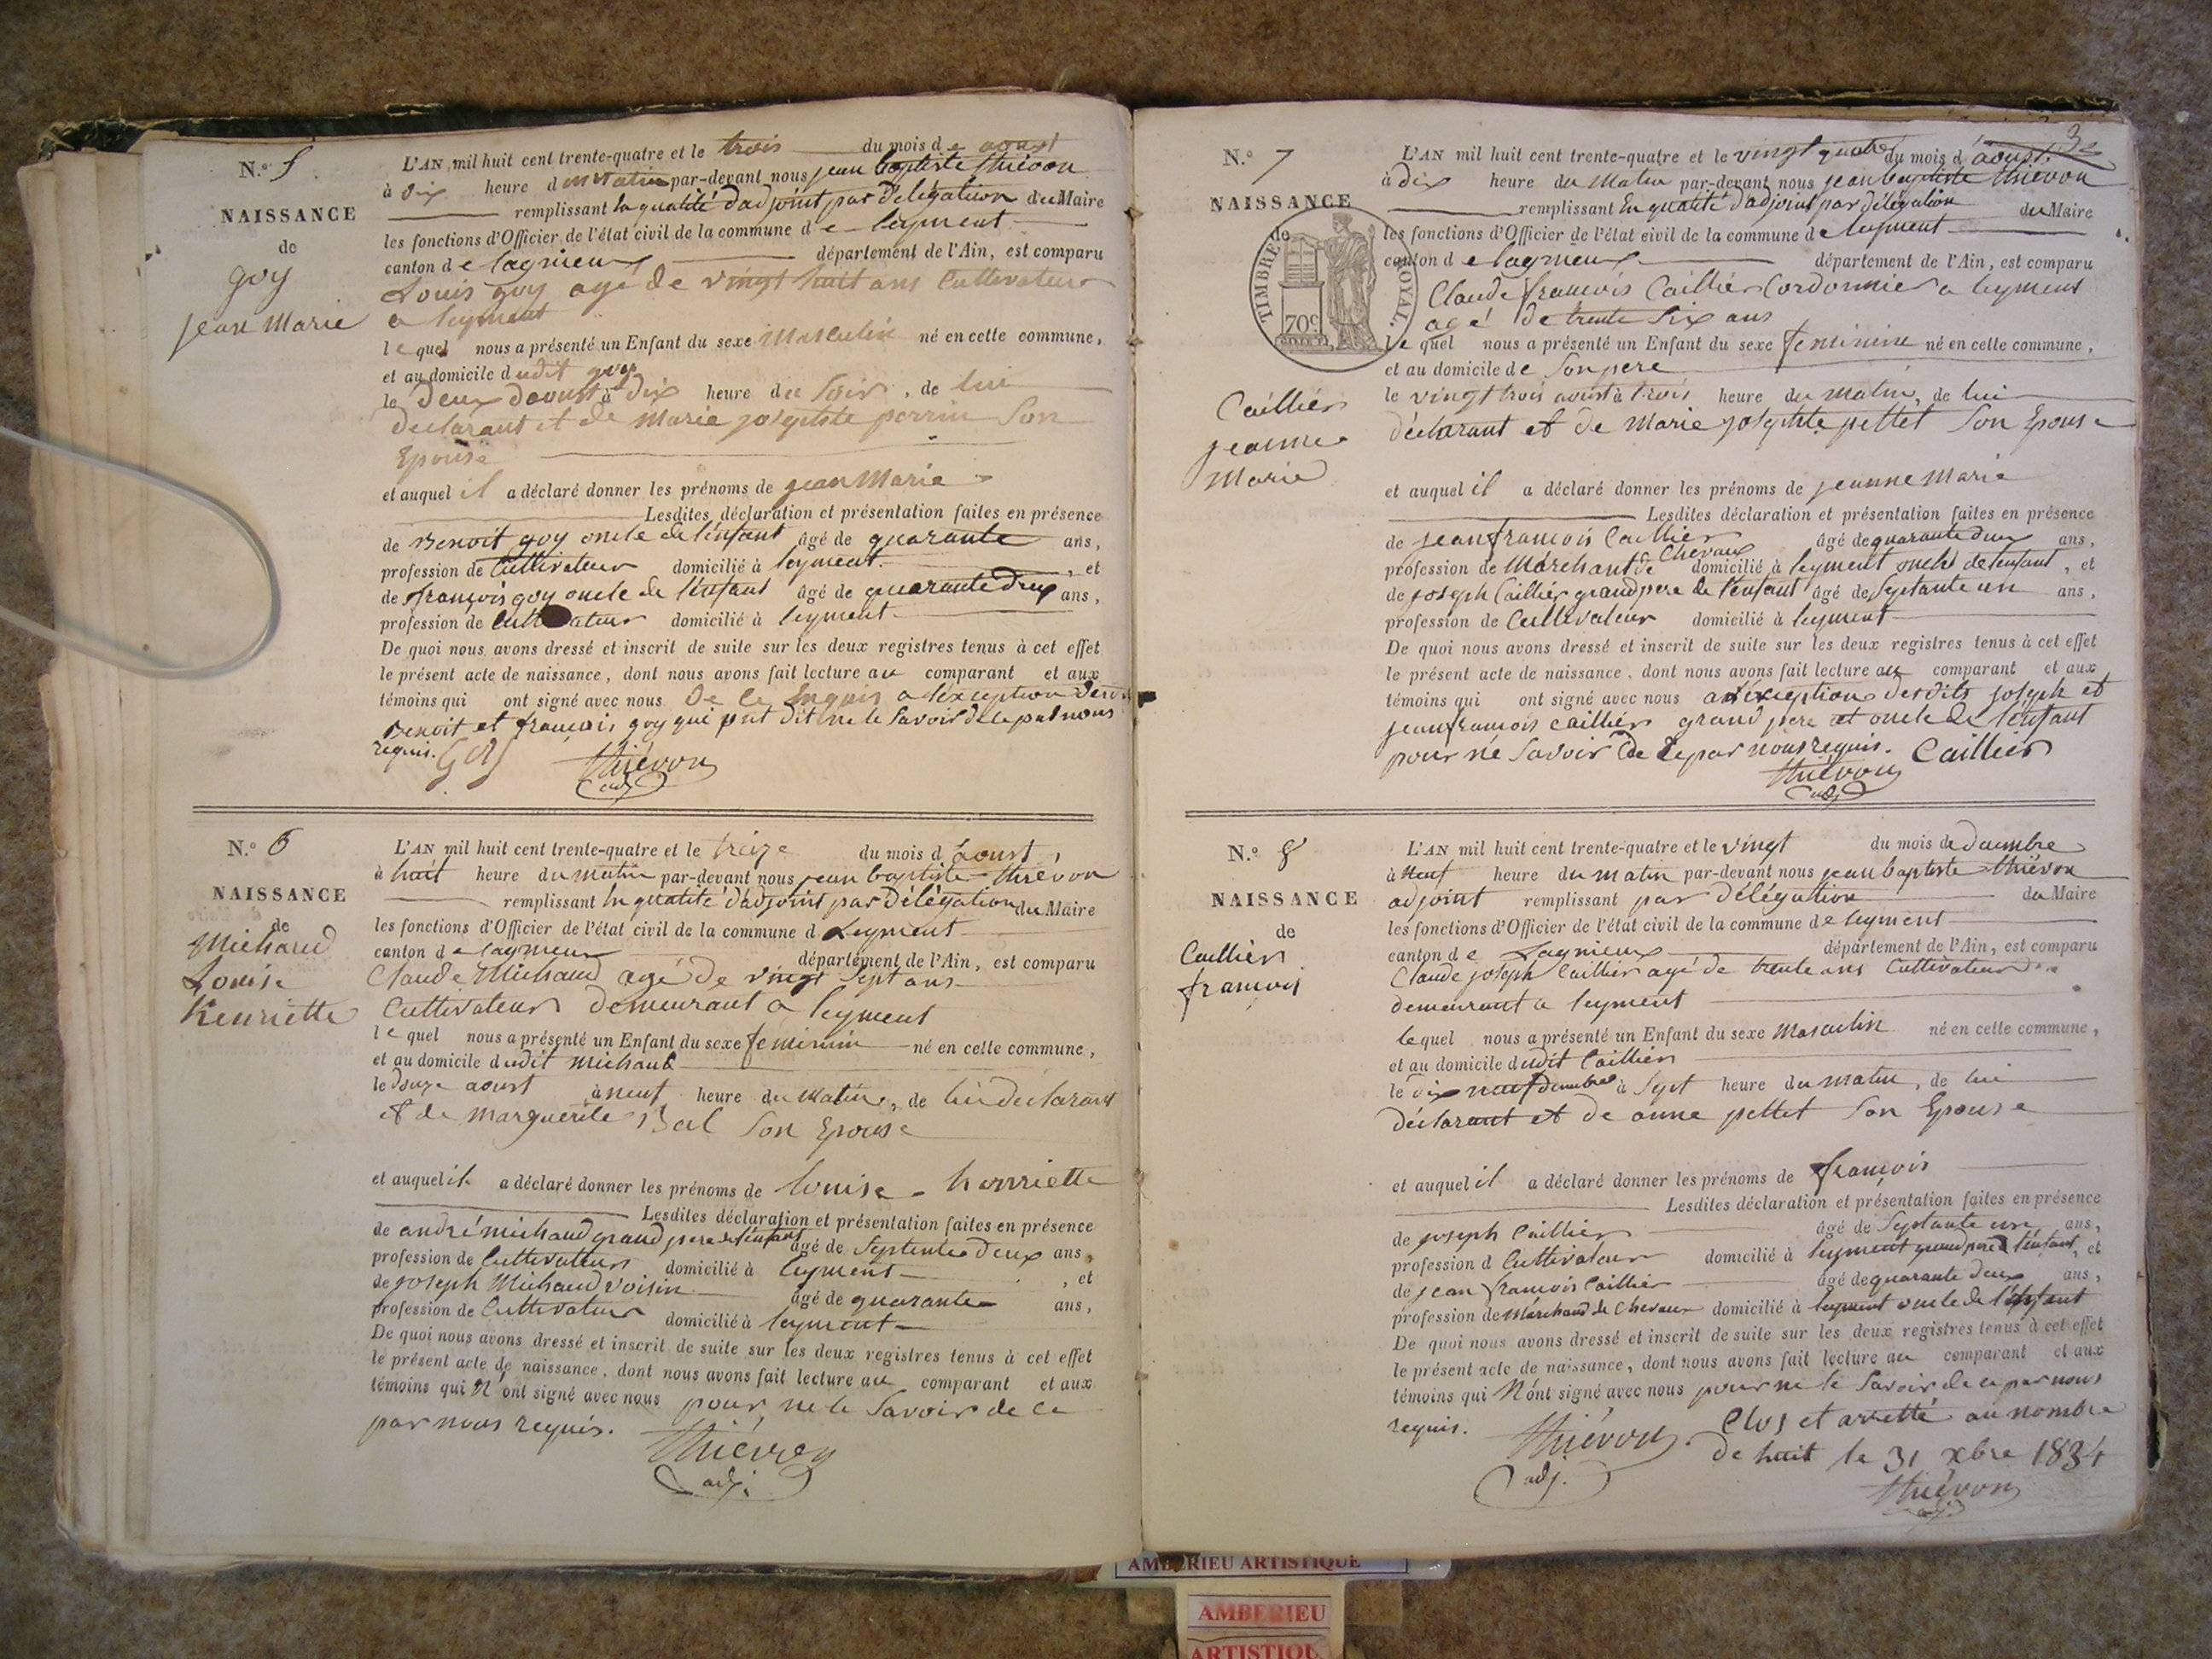 N.o 5
NAISSANCE
de
goy
jean Marie
L'AN mil huit cent trente-quatre et le trois du mois de aoust
à dix heure du Matin par-devant nous jean baptiste thiévon
remplissant la qualité d'adjoint par délégation du Maire
les fonctions d'Officier de l'état civil de la commune de leyment
canton de lagnieux département de l'Ain, est comparu
Louis goy agé de vingt huit ans Cultivateur
a leyment
le quel nous a présenté un Enfant du sexe Masculin né en cette commune,
et au domicile dudit goy
le deux daoust à dix heure du Soir, de lui
déclarant et de Marie josephte perrin Son
Epouse
et auquel il a déclaré donner les prénoms de jean Marie
Lesdites déclaration et présentation faites en présence
de Benoit goy oncle de l'enfant âgé de quarante ans,
profession de Cultivateur domicilié à leyment, et
de françois goy oncle de l'enfant âgé de quarante deux ans,
profession de domicilié à leyment
De quoi nous avons dressé et inscrit de suite sur les deux registres tenus à cet effet
le présent acte de naissance, dont nous avons fait lecture au comparant et aux
témoins qui ont signé avec nous De ce Enquis a lexception
Benoit et françois goy qui ont dit ne le Savoir de ce par nous
requis. Goy thiévon
adj
N.o 6
NAISSANCE
de
Michaud
Louise
henriette
L'AN mil huit cent trente-quatre et le treize du mois d'aoust
à huit heure du matin par-devant nous jean baptiste thiévon
remplissant En qualité d'adjoint par Délégation du Maire
les fonctions d'Officier de l'état civil de la commune d Leyment
canton de lagnieux département de l'Ain, est comparu
Claude Michaud agé de vingt Sept ans
Cultivateur demeurant a leyment
le quel nous a présenté un Enfant du sexe feminin né en cette commune,
et au domicile dudit michaud
le douze aoust à neuf heure du Matin, de lui déclarant
et de marguerite Bal Son Epouse
et auquel il a déclaré donner les prénoms de louise - henriette
Lesdites déclaration et présentation faites en présence
de andré michaud grand pere de l'enfant âgé de Septente deux ans,
profession de Cultivateur domicilié à leyment, et
de joseph Michaud voisin âgé de quarante ans,
profession de Cultivateur domicilié à leyment
De quoi nous avons dressé et inscrit de suite sur les deux registres tenus à cet effet
le présent acte de naissance, dont nous avons fait lecture au comparant et aux
témoins qui N'ont signé avec nous pour ne le Savoir de ce
par nous requis. thiévon
adj.
N.o 7
NAISSANCE
de
TIMBRE ROYAL.
70c
Caillier
jeanne
Marie
L'AN mil huit cent trente-quatre et le vingt quatre du mois d'aoust
à dix heure du Matin par-devant nous jean baptiste thiévon
remplissant En qualité d'adjoint par délégation du Maire
les fonctions d'Officier de l'état civil de la commune de leyment
canton de lagnieux département de l'Ain, est comparu
Claude françois Caillier Cordonnier a leyment
agé de trente Six ans
le quel nous a présenté un Enfant du sexe feminine né en cette commune,
et au domicile de Son pere
le vingt trois aoust à trois heure du matin, de lui
déclarant et de Marie josephte pettet Son Epouse
et auquel il a déclaré donner les prénoms de jeanne Marie
Lesdites déclaration et présentation faites en présence
de jean françois Caillier âgé de quarante deux ans,
profession de Marchand de Chevaux domicilié à leyment oncle de l'enfant, et
de joseph Caillier grand pere de l'enfant âgé de Septante un ans,
profession de Cultivateur domicilié à leyment
De quoi nous avons dressé et inscrit de suite sur les deux registres tenus à cet effet
le présent acte de naissance, dont nous avons fait lecture au comparant et aux
témoins qui ont signé avec nous a l'exception desdits joseph et
jean françois caillier grand pere et oncle de l'enfant
pour ne Savoir de ce par nous requis. Caillier
thiévon
adj
N.o 8
NAISSANCE
de
Caillier
françois
L'AN mil huit cent trente-quatre et le vingt du mois de dcembre
à Neuf heure du matin par-devant nous jean baptiste thiévon
adjoint remplissant par délégation du Maire
les fonctions d'Officier de l'état civil de la commune de leyment
canton de Lagnieux département de l'Ain, est comparu
Claude joseph Caillier agé de trente ans Cultivateur
demeurant a leyment
lequel nous a présenté un Enfant du sexe Masculin né en cette commune,
et au domicile dudit Caillier
le dix neuf dcembre à Sept heure du matin, de lui
déclarant et de anne pettet Son Epouse
et auquel il a déclaré donner les prénoms de françois
Lesdites déclaration et présentation faites en présence
de joseph Caillier âgé de Septante une ans,
profession d Cultivateur domicilié à leyment grand pere de l'enfant, et
de jean françois Caillier âgé de quarante deux ans,
profession de Marchand de Chevaux domicilié à leyment oncle de l'enfant
De quoi nous avons dressé et inscrit de suite sur les deux registres tenus à cet effet
le présent acte de naissance, dont nous avons fait lecture au comparant et aux
témoins qui N'ont signé avec nous pour ne le Savoir de ce par nous
requis. thiévon
adj.
Clos et arretté au nombre
de huit le 31 xbre 1834
thiévon
adj
AMBERIEU ARTISTIQUE
AMBERIEU
ARTISTIQU